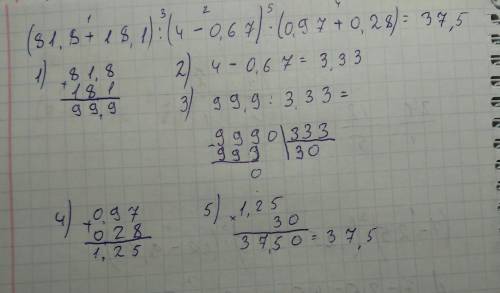 1 3 2 5 4
(81,8+18,1):(4-0,67)·(0,97+0,28)=37,5
1) + 81,8
181
99,9
2) 4-0,67=3,33
3) 99,9:3,33=
- 9990 | 333
993 | 30
0
4) + 0,97
0 28
1,25
5) × 1,25
30
37,50=37,5